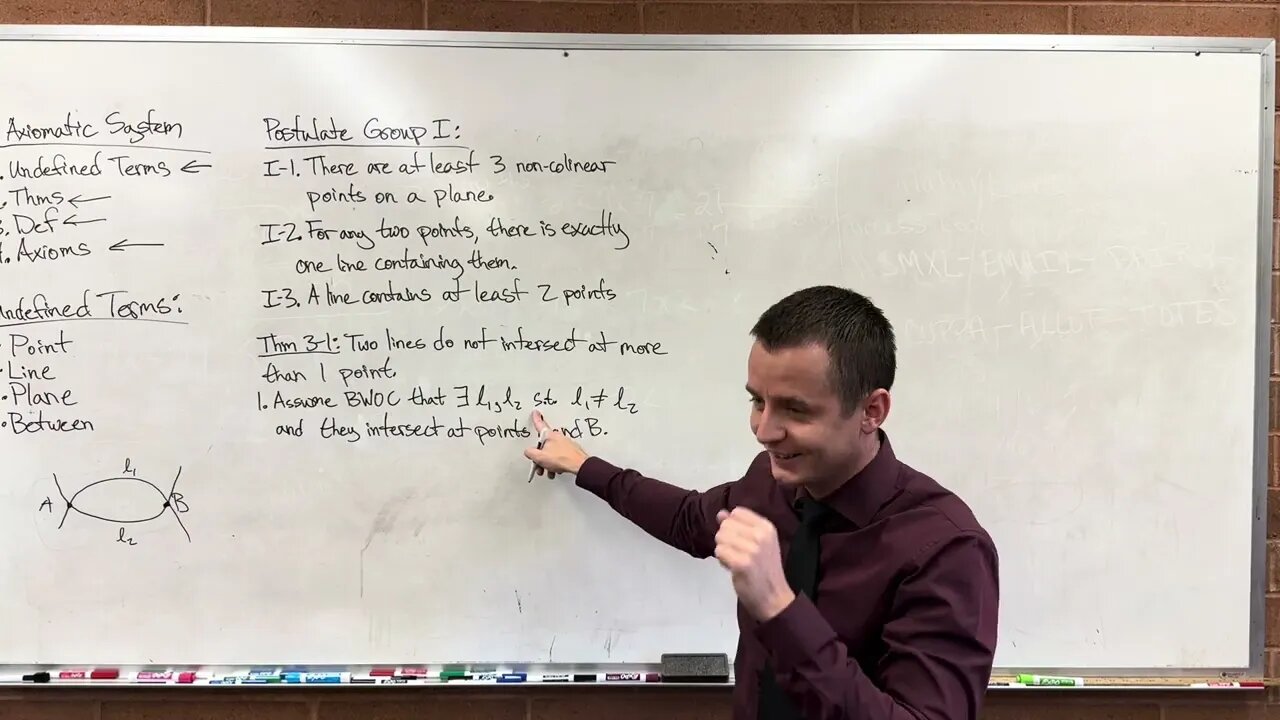 Axiomatic System
Undefined Terms ←
Thms ←
Def ←
Axioms ←
Undefined Terms:
• Point
• Line
• Plane
• Between
l₁
A B
l₂
Postulate Group I:
I-1. There are at least 3 non-colinear
points on a plane.
I-2. For any two points, there is exactly
one line containing them.
I-3. A line contains at least 2 points
Thm 3-1: Two lines do not intersect at more
than 1 point.
1. Assume BWOC that ∃ l₁, l₂ s.t. l₁ ≠ l₂
and they intersect at points and B.
SMXL-EMAIL-
-ALLOT-TOTES